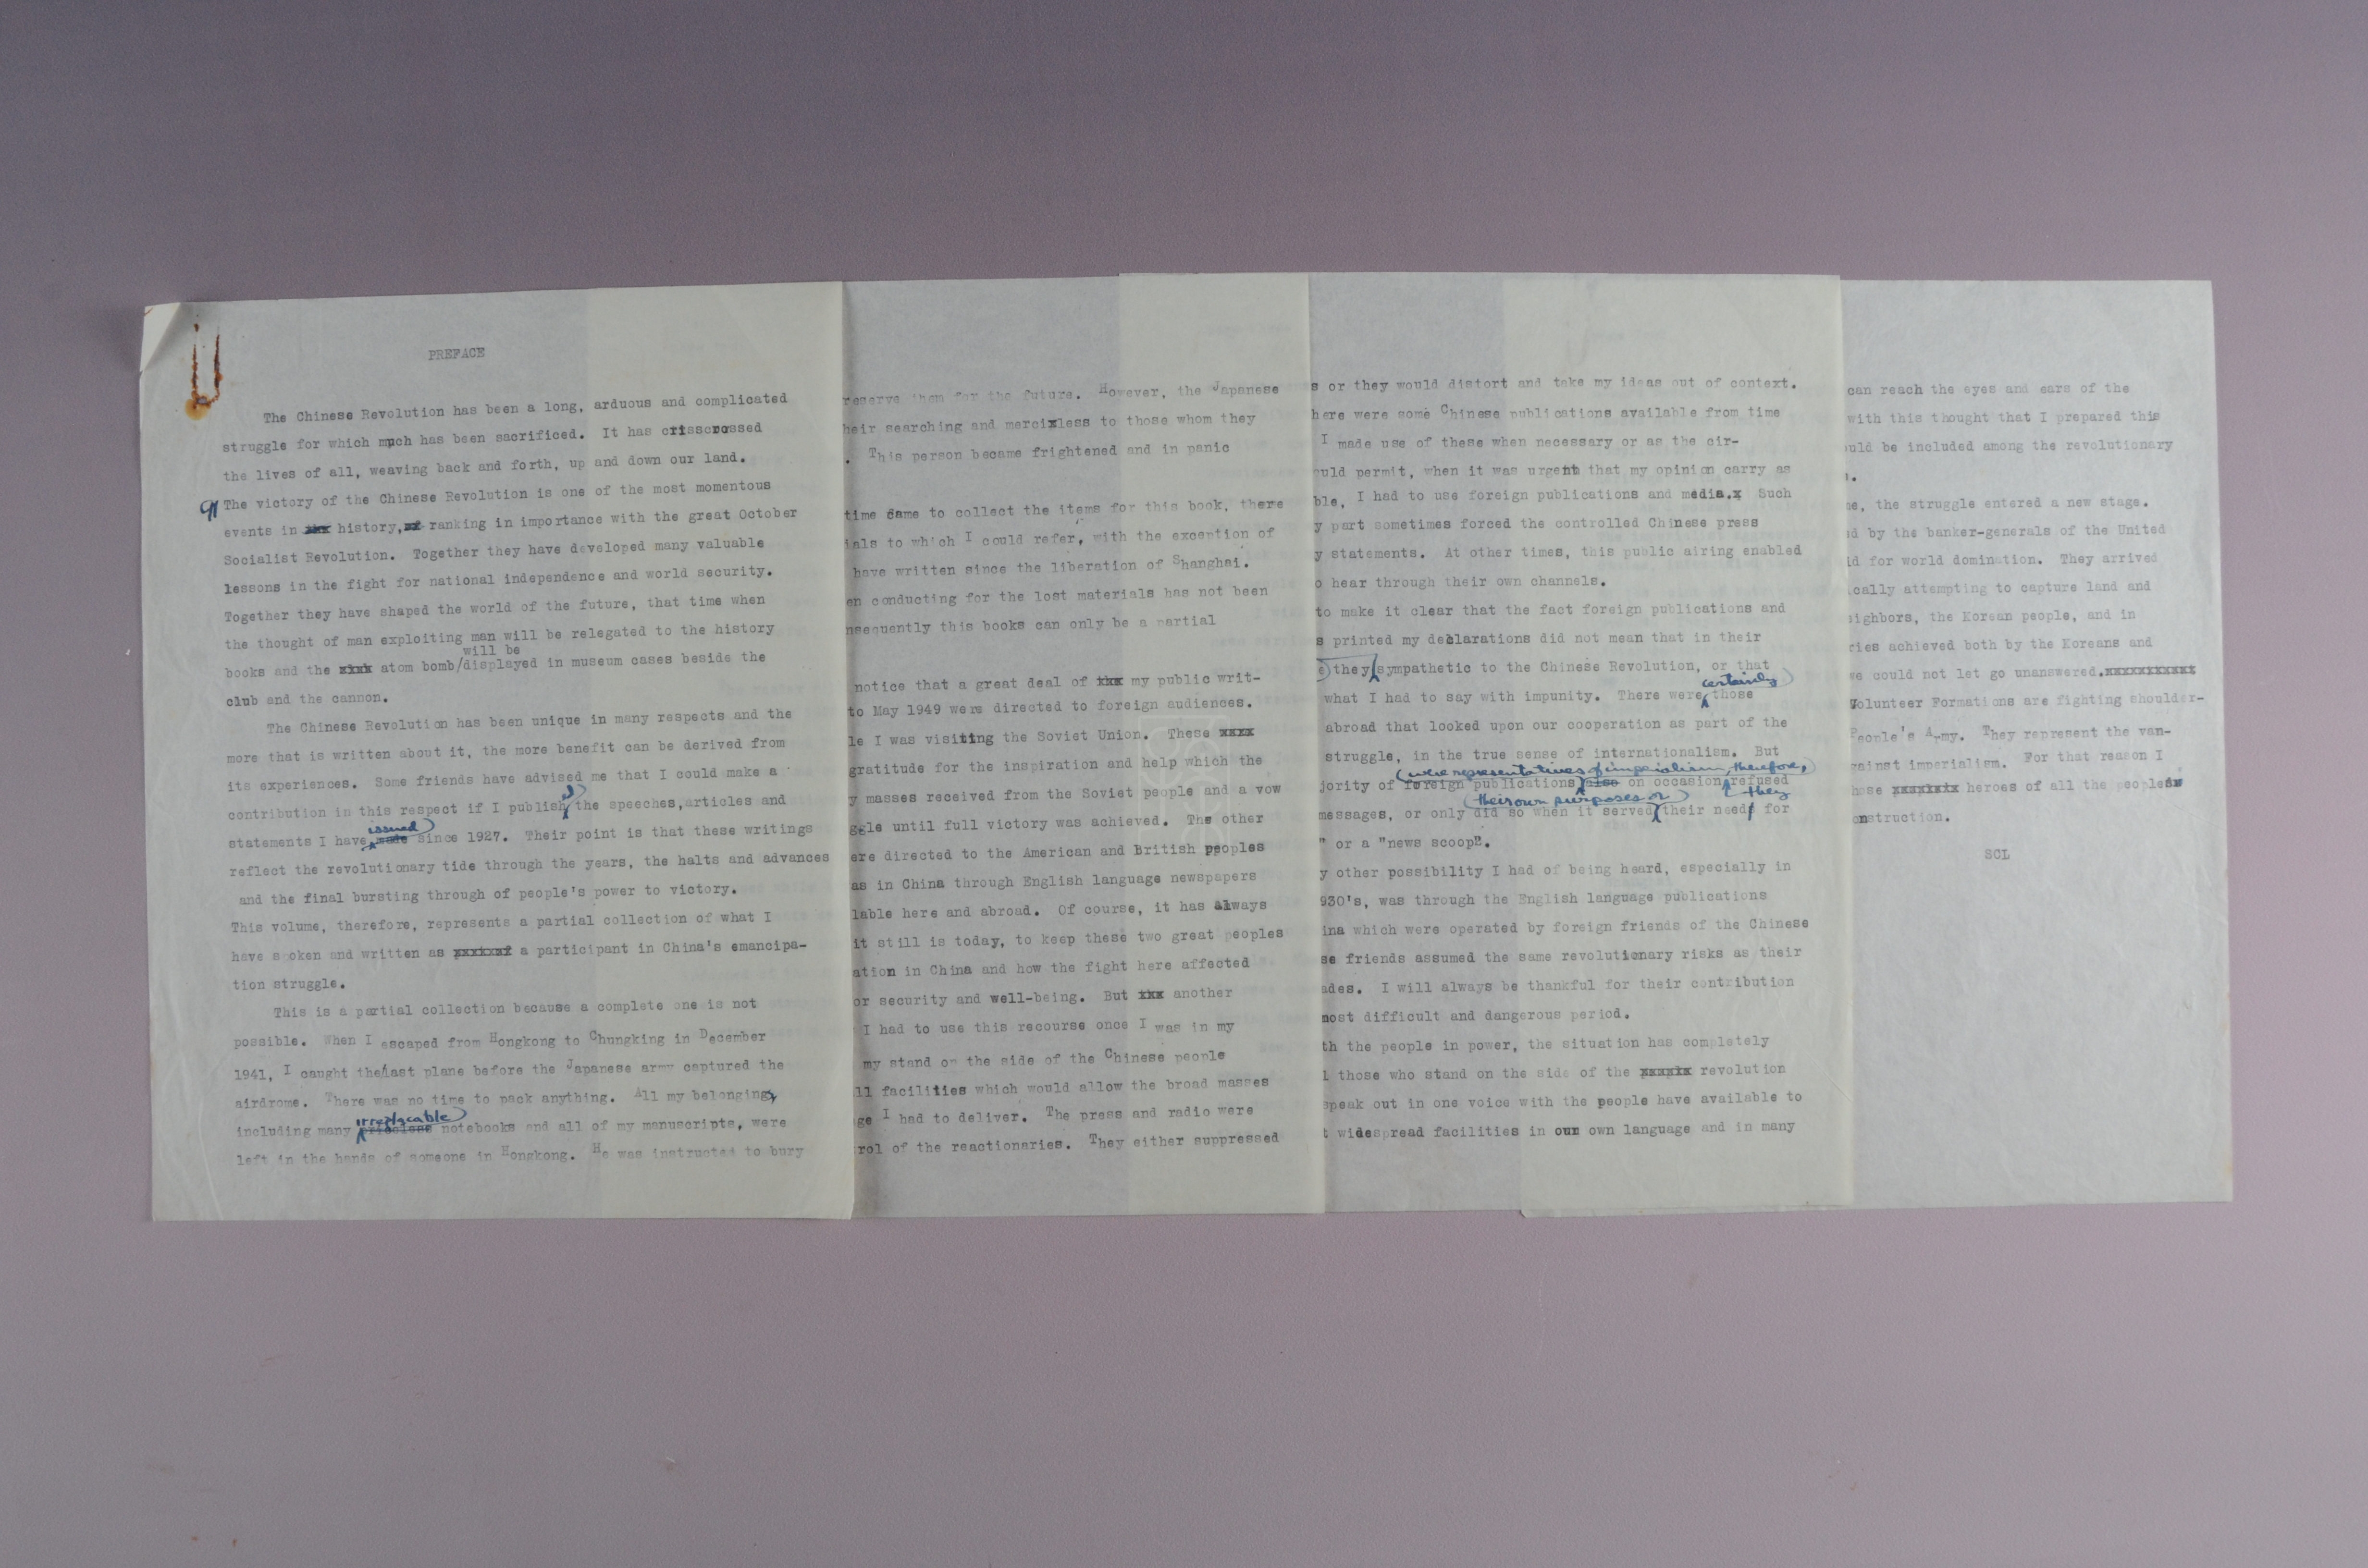 PREFACE
The Chinese Revolution has been a long, arduous and complicated
struggle for which much has been sacrificed. It has crisscrossed
the lives of all, weaving back and forth, up and down our land.
¶ The victory of the Chinese Revolution is one of the most momentous
events in xxx history, xx ranking in importance with the great October
Socialist Revolution. Together they have developed many valuable
lessons in the fight for national independence and world security.
Together they have shaped the world of the future, that time when
the thought of man exploiting man will be relegated to the history
will be
books and the xxxx atom bomb/displayed in museum cases beside the
club and the cannon.
The Chinese Revolution has been unique in many respects and the
more that is written about it, the more benefit can be derived from
its experiences. Some friends have advised me that I could make a
contribution in this respect if I publish the speeches,articles and
issued
statements I have made since 1927. Their point is that these writings
reflect the revolutionary tide through the years, the halts and advances
and the final bursting through of people's power to victory.
This volume, therefore, represents a partial collection of what I
have spoken and written as a participant in China's emancipa-
tion struggle.
This is a partial collection because a complete one is not
possible. When I escaped from Hongkong to Chungking in December
1941, I caught the/last plane before the Japanese army captured the
airdrome. There was no time to pack anything. All my belongings,
irreplacable
including many priceless notebooks and all of my manuscripts, were
left in the hands of someone in Hongkong. He was instructed to bury
reserve them for the future. However, the Japanese
heir searching and mercixless to those whom they
. This person became frightened and in panic
time came to collect the items for this book, there
ials to which I could refer, with the exception of
have written since the liberation of Shanghai.
en conducting for the lost materials has not been
nsequently this books can only be a partial
notice that a great deal of xxx my public writ-
to May 1949 were directed to foreign audiences.
le I was visiting the Soviet Union. These xxxx
gratitude for the inspiration and help which the
y masses received from the Soviet people and a vow
ggle until full victory was achieved. The other
ere directed to the American and British peoples
as in China through English language newspapers
lable here and abroad. Of course, it has always
it still is today, to keep these two great peoples
ation in China and how the fight here affected
or security and well-being. But xxx another
I had to use this recourse once I was in my
my stand on the side of the Chinese people
ll facilities which would allow the broad masses
ge I had to deliver. The press and radio were
rol of the reactionaries. They either suppressed
s or they would distort and take my ideas out of context.
here were some Chinese publications available from time
I made use of these when necessary or as the cir-
uld permit, when it was urgent that my opinion carry as
ble, I had to use foreign publications and media.x Such
y part sometimes forced the controlled Chinese press
y statements. At other times, this public airing enabled
o hear through their own channels.
to make it clear that the fact foreign publications and
s printed my declarations did not mean that in their
e they sympathetic to the Chinese Revolution, or that
certainly
what I had to say with impunity. There were those
abroad that looked upon our cooperation as part of the
struggle, in the true sense of internationalism. But
were representatives of imperialism, therefore,
jority of foreign publications also on occasion refused
their own purposes or they
messages, or only did so when it served their need for
" or a "news scoop".
y other possibility I had of being heard, especially in
930's, was through the English language publications
ina which were operated by foreign friends of the Chinese
se friends assumed the same revolutionary risks as their
ades. I will always be thankful for their contribution
most difficult and dangerous period.
th the people in power, the situation has completely
l those who stand on the side of the revolution
speak out in one voice with the people have available to
t widespread facilities in our own language and in many
can reach the eyes and ears of the
with this thought that I prepared this
ould be included among the revolutionary
me, the struggle entered a new stage.
ed by the banker-generals of the United
id for world domination. They arrived
ically attempting to capture land and
eighbors, the Korean people, and in
ries achieved both by the Koreans and
we could not let go unanswered.
Volunteer Formations are fighting shoulder-
People's Army. They represent the van-
gainst imperialism. For that reason I
hese heroes of all the people
onstruction.
SCL